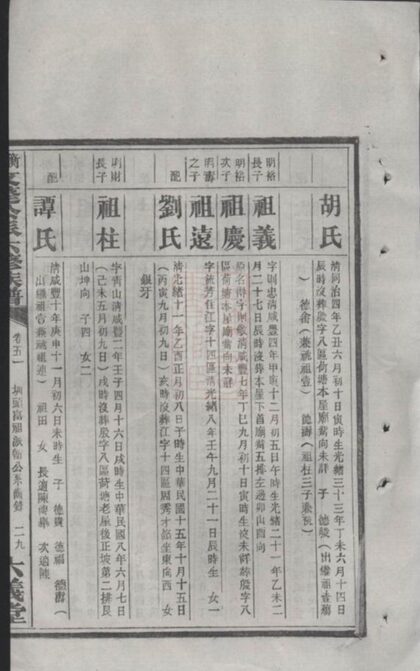 胡氏
清同治四年乙丑六月初十日寅時生光緒三十三年丁未六月十四日
辰時沒葬殷字八區荷塘本屋廟當向未詳 子 德發(出繼祖
德衛(兼祧祖 德壽(祖柱三子兼祧)
明裕
長子
祖義
字則忠清咸豐四年甲寅十二月初五日午時生光緒二十一年乙未二
月二十七日辰時沒葬本屋下首廟第五排左邊卯山酉向
明裕
次子
祖慶
清咸豐七年丁巳九月初十日寅時生沒未詳葬殷字八
區荷塘本屋廟當向未詳
明壽
之子
祖遠
江字十四區清光緒八年壬午九月二十一日辰時生 女一
配
劉氏
清光緒十一年乙酉正月初八日子時生中華民國十五年十月十五日
(丙寅九月初九日)亥時沒葬江字十四區周秀才 坐東向西 女
銀牙
明財
長子
祖柱
字青山清咸豐二年壬子四月十六日戌時生中華民國八年六月七日
(己未五月初九日)戌時沒葬殷字八區荷塘老屋後正坡第二排艮
山坤向 子四 女二
配
譚氏
清咸豐十年庚申十一月初六日未時生 子 德廣 德福 德壽(
出繼祖 兼祧祖 祖田 女 長適陳 次適陳
卷五一
二九
六義堂